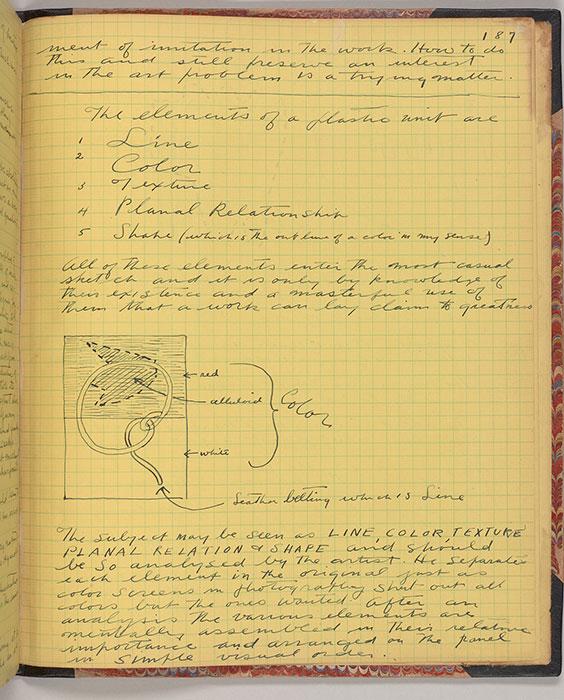 187
ment of imitation in the work. How to do
this and still preserve an interest
in the art problem is a trying matter.
The elements of a plastic unit are
1 Line
2 Color
3 Texture
4 Planal Relationship
5 Shape (which is the outline of a color in my sense)
All of these elements enter the most casual
sketch and it is only by knowledge of
their existence and a masterful use of
them that a work can lay claim to greatness
red
celluloid
Color
white
Leather belting which is Line
The subject may be seen as LINE, COLOR, TEXTURE
PLANAL RELATION & SHAPE and should
be so analysed by the artist. He separates
each element in the original just as
color screens in photography shut out all
colors but the ones wanted. After an
analysis the various elements are
mentally assembled in their relative
importance and arranged on the panel
in simple visual order.